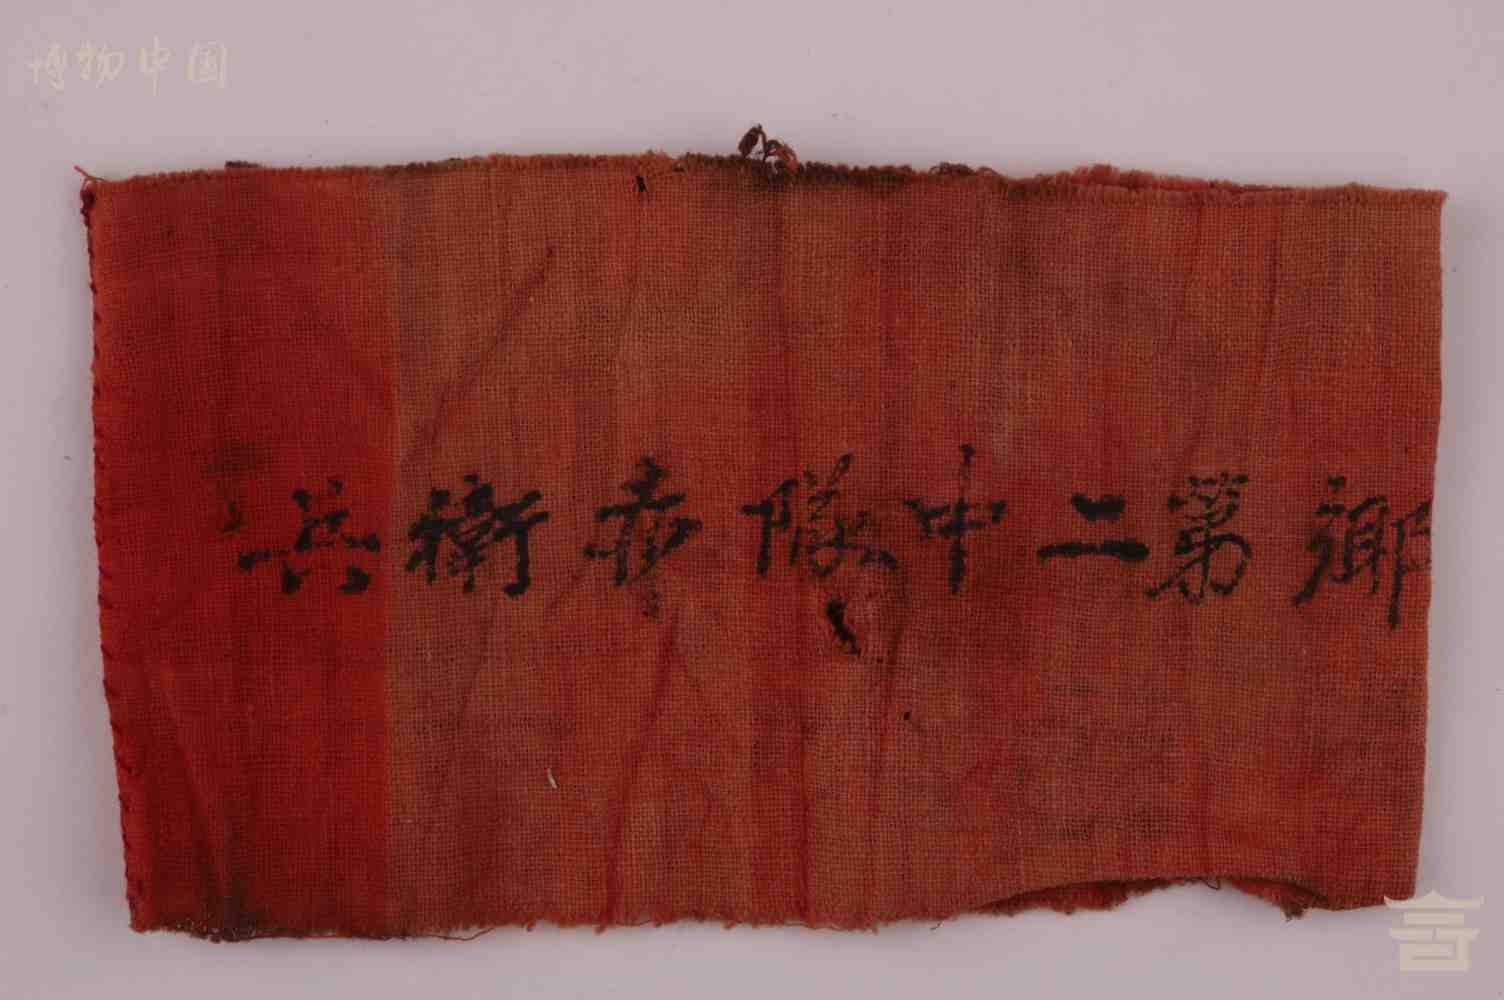 博物中国
鄉第二中隊赤衛兵